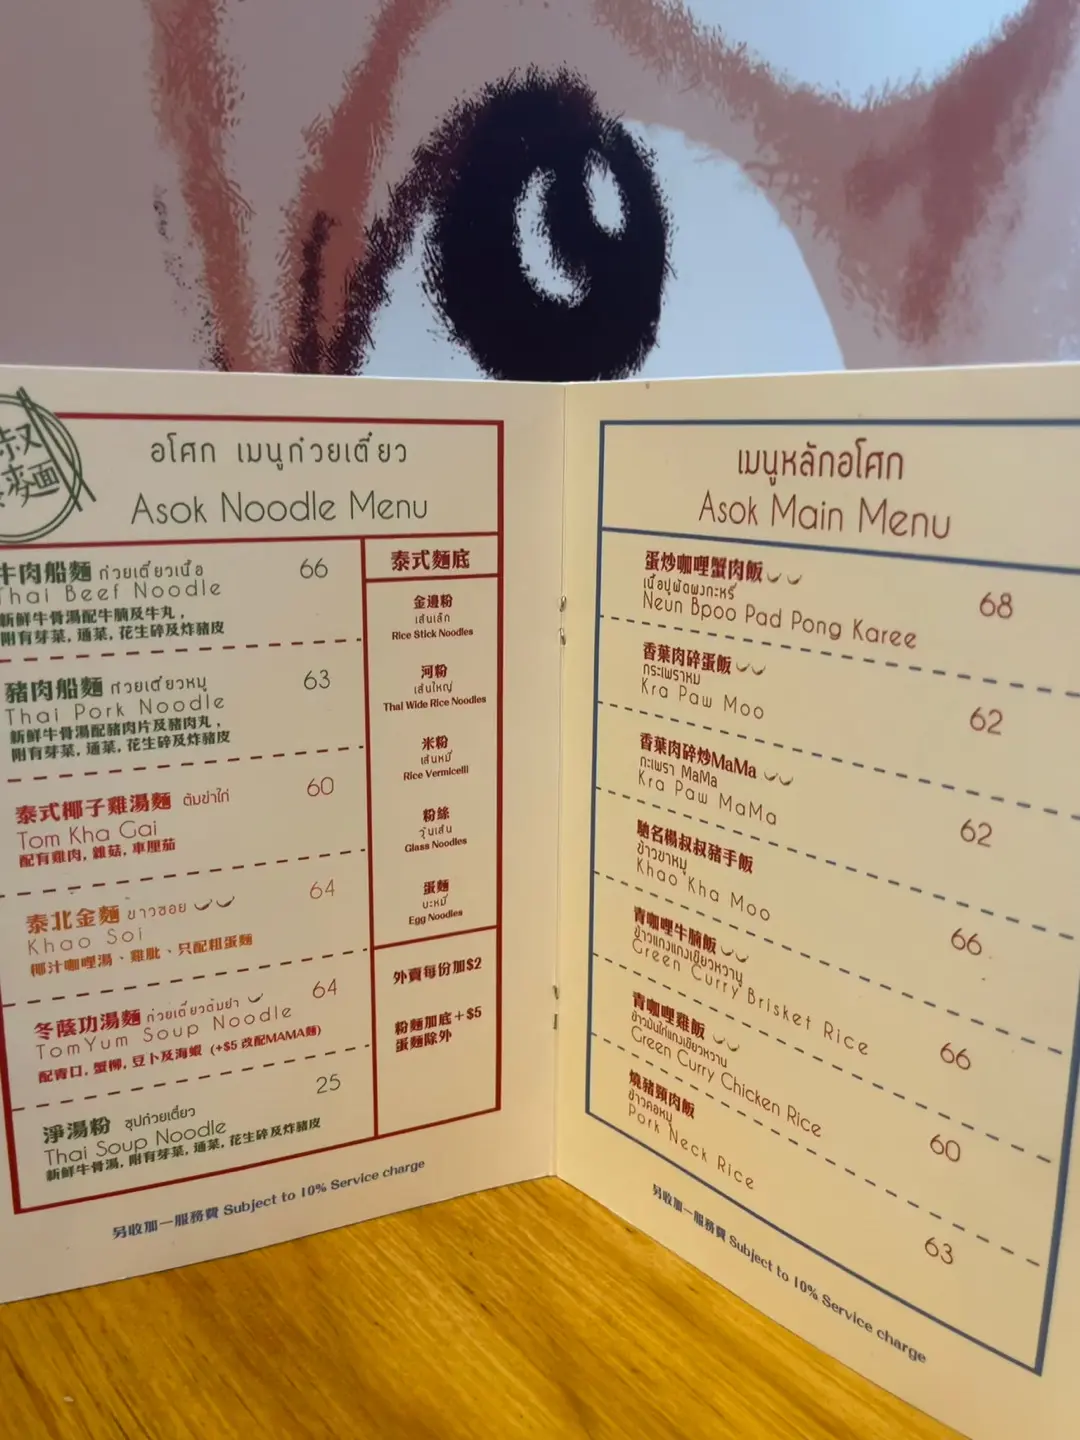 叔
麵
อโศก เมนูก๋วยเตี๋ยว
Asok Noodle Menu
牛肉船麵 ก๋วยเตี๋ยวเนื้อ 66
Thai Beef Noodle
新鮮牛骨湯配牛腩及牛丸,
附有芽菜, 通菜, 花生碎及炸豬皮
豬肉船麵 ก๋วยเตี๋ยวหมู 63
Thai Pork Noodle
新鮮牛骨湯配豬肉片及豬肉丸,
附有芽菜, 通菜, 花生碎及炸豬皮
泰式椰子雞湯麵 ต้มข่าไก่ 60
Tom Kha Gai
配有雞肉, 雜菇, 車厘茄
泰北金麵 ขาวซอย 64
Khao Soi
椰汁咖哩湯、雞肶、只配粗蛋麵
冬蔭功湯麵 ก๋วยเตี๋ยวต้มยำ 64
TomYum Soup Noodle
配青口, 蟹柳, 豆卜及海蝦 (+$5 改配MAMA麵)
淨湯粉 ซุปก๋วยเตี๋ยว 25
Thai Soup Noodle
新鮮牛骨湯, 附有芽菜, 通菜, 花生碎及炸豬皮
泰式麵底
金邊粉
เส้นเล็ก
Rice Stick Noodles
河粉
เส้นใหญ่
Thai Wide Rice Noodles
米粉
เส้นหมี่
Rice Vermicelli
粉絲
วุ้นเส้น
Glass Noodles
蛋麵
บะหมี่
Egg Noodles
外賣每份加$2
粉麵加底+$5
蛋麵除外
另收加一服務費 Subject to 10% Service charge
เมนูหลักอโศก
Asok Main Menu
蛋炒咖哩蟹肉飯 68
เนื้อปูผัดผงกะหรี่
Neun Bpoo Pad Pong Karee
香葉肉碎蛋飯 62
กระเพราหมู
Kra Paw Moo
香葉肉碎炒MaMa 62
กะเพรา MaMa
Kra Paw MaMa
馳名楊叔叔豬手飯 66
ข้าวขาหมู
Khao Kha Moo
青咖哩牛腩飯 66
ข้าวแกงแกงเขียวหวานู
Green Curry Brisket Rice
青咖哩雞飯 60
ข้าวมันไก่แกงเขียวหวาน
Green Curry Chicken Rice
燒豬頸肉飯 63
ข้าวคอหมู
Pork Neck Rice
另收加一服務費 Subject to 10% Service charge